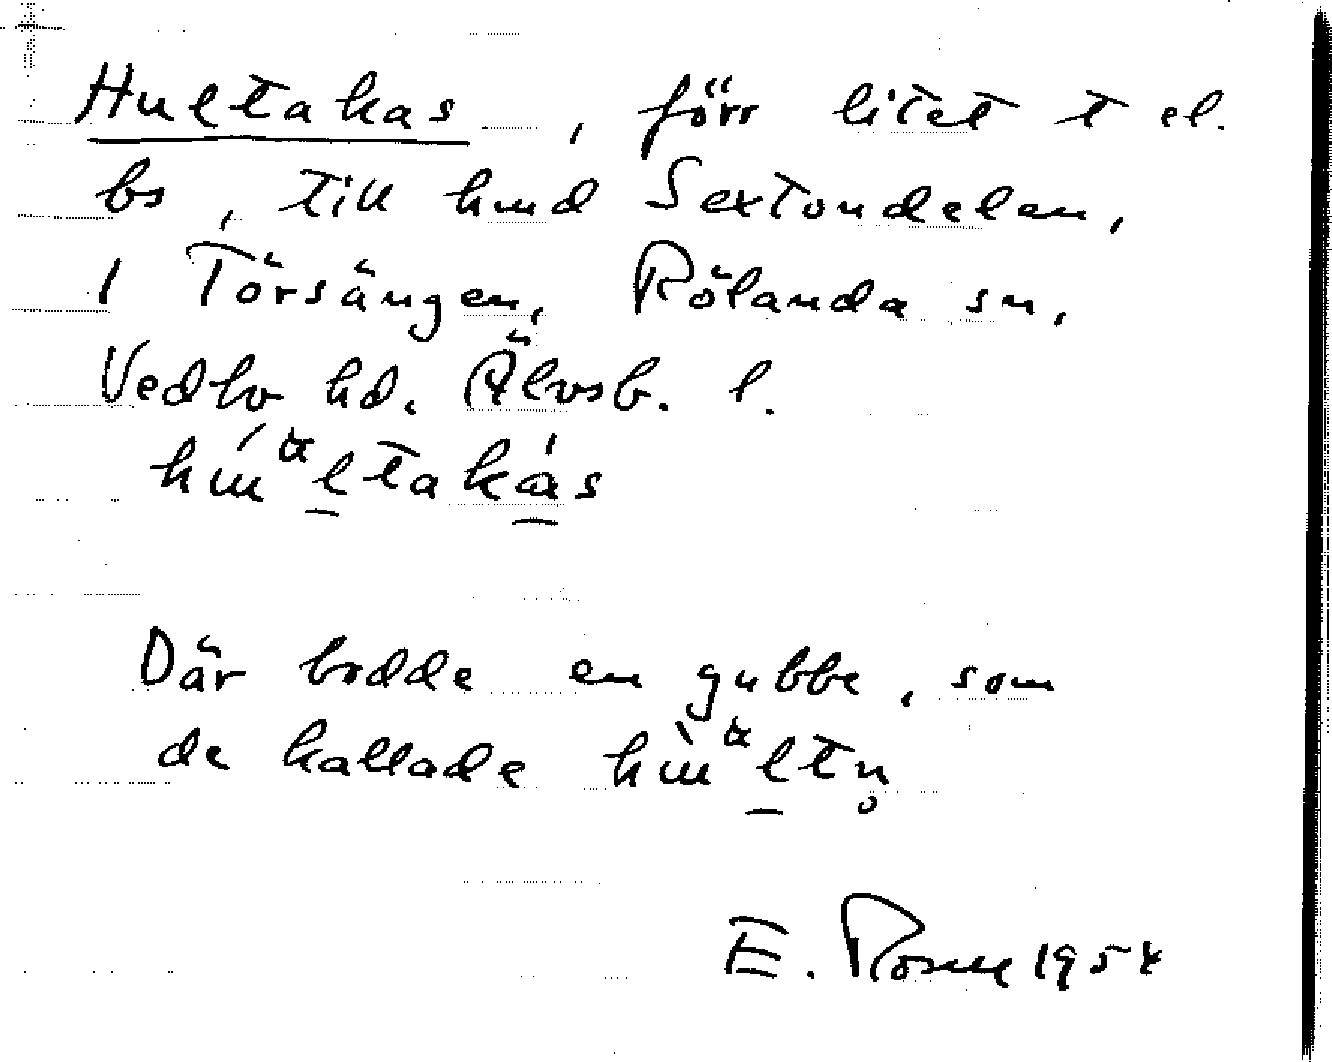 Hultakas, förr litet t el.
bs, till hmd Sextondelen,
i Törsängen, Rölanda sn,
Vedbo hd. Älvsb. l.
Där bodde en gubbe, som
de kallade
E. 1954